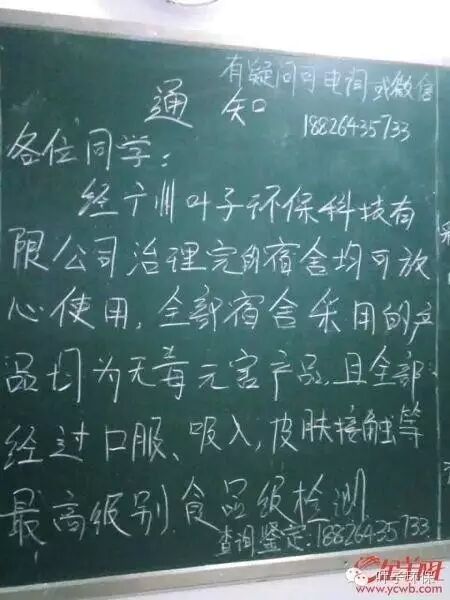 有疑问可电询或微信
18826435733
通知
各位同学：
经广州叶子环保科技有
限公司治理完的宿舍均可放
心使用，全部宿舍采用的产
品均为无毒无害产品，且全部
经过口服、吸入，皮肤接触等
最高级别食品级检测
查询鉴定：18826435733
叶子环保
金羊网
www.ycwb.com